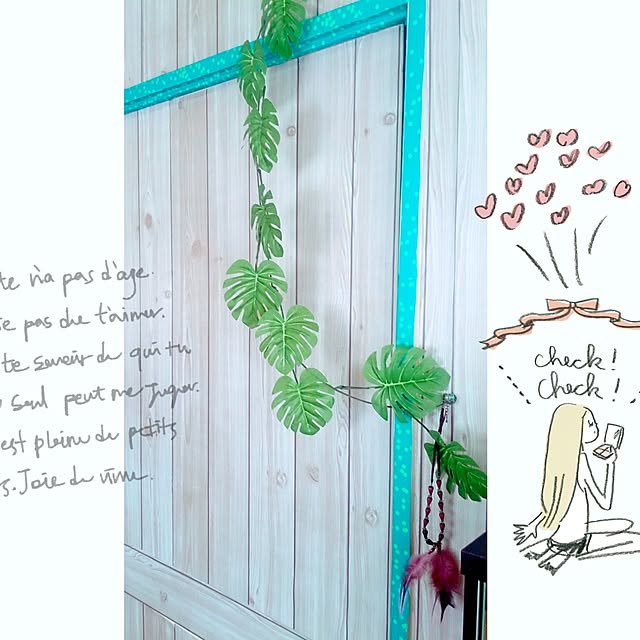 te n'a pas d'age.
ie pas du t'aimer.
te savoir de qui tu
seul peut me juger.
est pleine de petits
s. Joie de vivre.
check!
check!